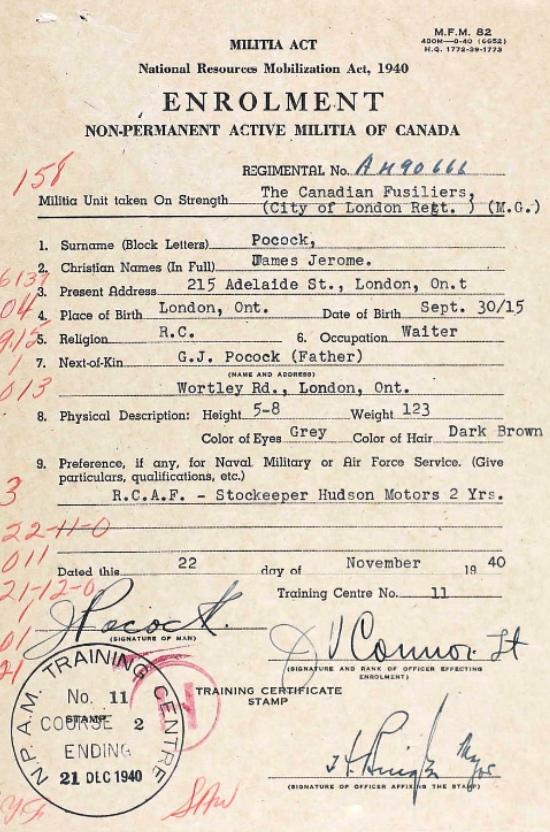 M.F.M. 82
400M—9-40 (6652)
H.Q. 1772-39-1773
MILITIA ACT
National Resources Mobilization Act, 1940
ENROLMENT
NON-PERMANENT ACTIVE MILITIA OF CANADA
158
REGIMENTAL No. AH90666
The Canadian Fusiliers,
Militia Unit taken On Strength (City of London Regt. ) (M.G.)
1. Surname (Block Letters) Pocock,
2. Christian Names (In Full) James Jerome.
6137
3. Present Address 215 Adelaide St., London, On.t
04
4. Place of Birth London, Ont. Date of Birth Sept. 30/15
9.15
5. Religion R.C. 6. Occupation Waiter
1
7. Next-of-Kin G.J. Pocock (Father)
(NAME AND ADDRESS)
013
Wortley Rd., London, Ont.
8. Physical Description: Height 5-8 Weight 123
Color of Eyes Grey Color of Hair Dark Brown
9. Preference, if any, for Naval, Military or Air Force Service. (Give
particulars, qualifications, etc.)
3
R.C.A.F. - Stockeeper Hudson Motors 2 Yrs.
22-11-0
011
Dated this 22 day of November 19 40
21-12-0
Training Centre No. 11
1
J Pocock.
01
(SIGNATURE OF MAN)
J V Connor Lt
21
(SIGNATURE AND RANK OF OFFICER EFFECTING
ENROLMENT)
N.P.A.M. TRAINING CENTRE
No. 11
STAMP
COURSE 2
ENDING
21 DEC 1940
TRAINING CERTIFICATE
STAMP
Major
(SIGNATURE OF OFFICER AFFIXING THE STAMP)